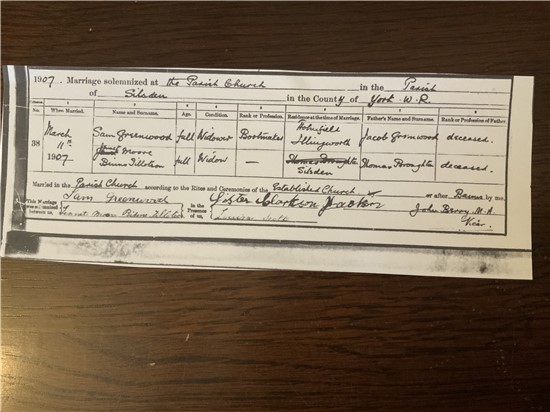 1907. Marriage solemnized at the Parish Church in the Parish
of Silsden in the County of York W.R.
Columns:— 1 2 3 4 5 6 7 8
No. When Married. Name and Surname. Age. Condition. Rank or Profession. Residence at the time of Marriage. Father's Name and Surname. Rank or Profession of Father.
38 March 11th 1907 Sam Greenwood full Widower Bootmaker Illingworth Jacob Greenwood deceased.
Moore Binns Tillotson full Widow — Thomas Broughton Silsden Thomas Broughton deceased.
Married in the Parish Church according to the Rites and Ceremonies of the Established Church or after Banns by me,
This Marriage was solemnized between us, Sam Greenwood in the Presence of us, Clarkson John Berry M.A.
Moore Binns Tillotson Vicar.